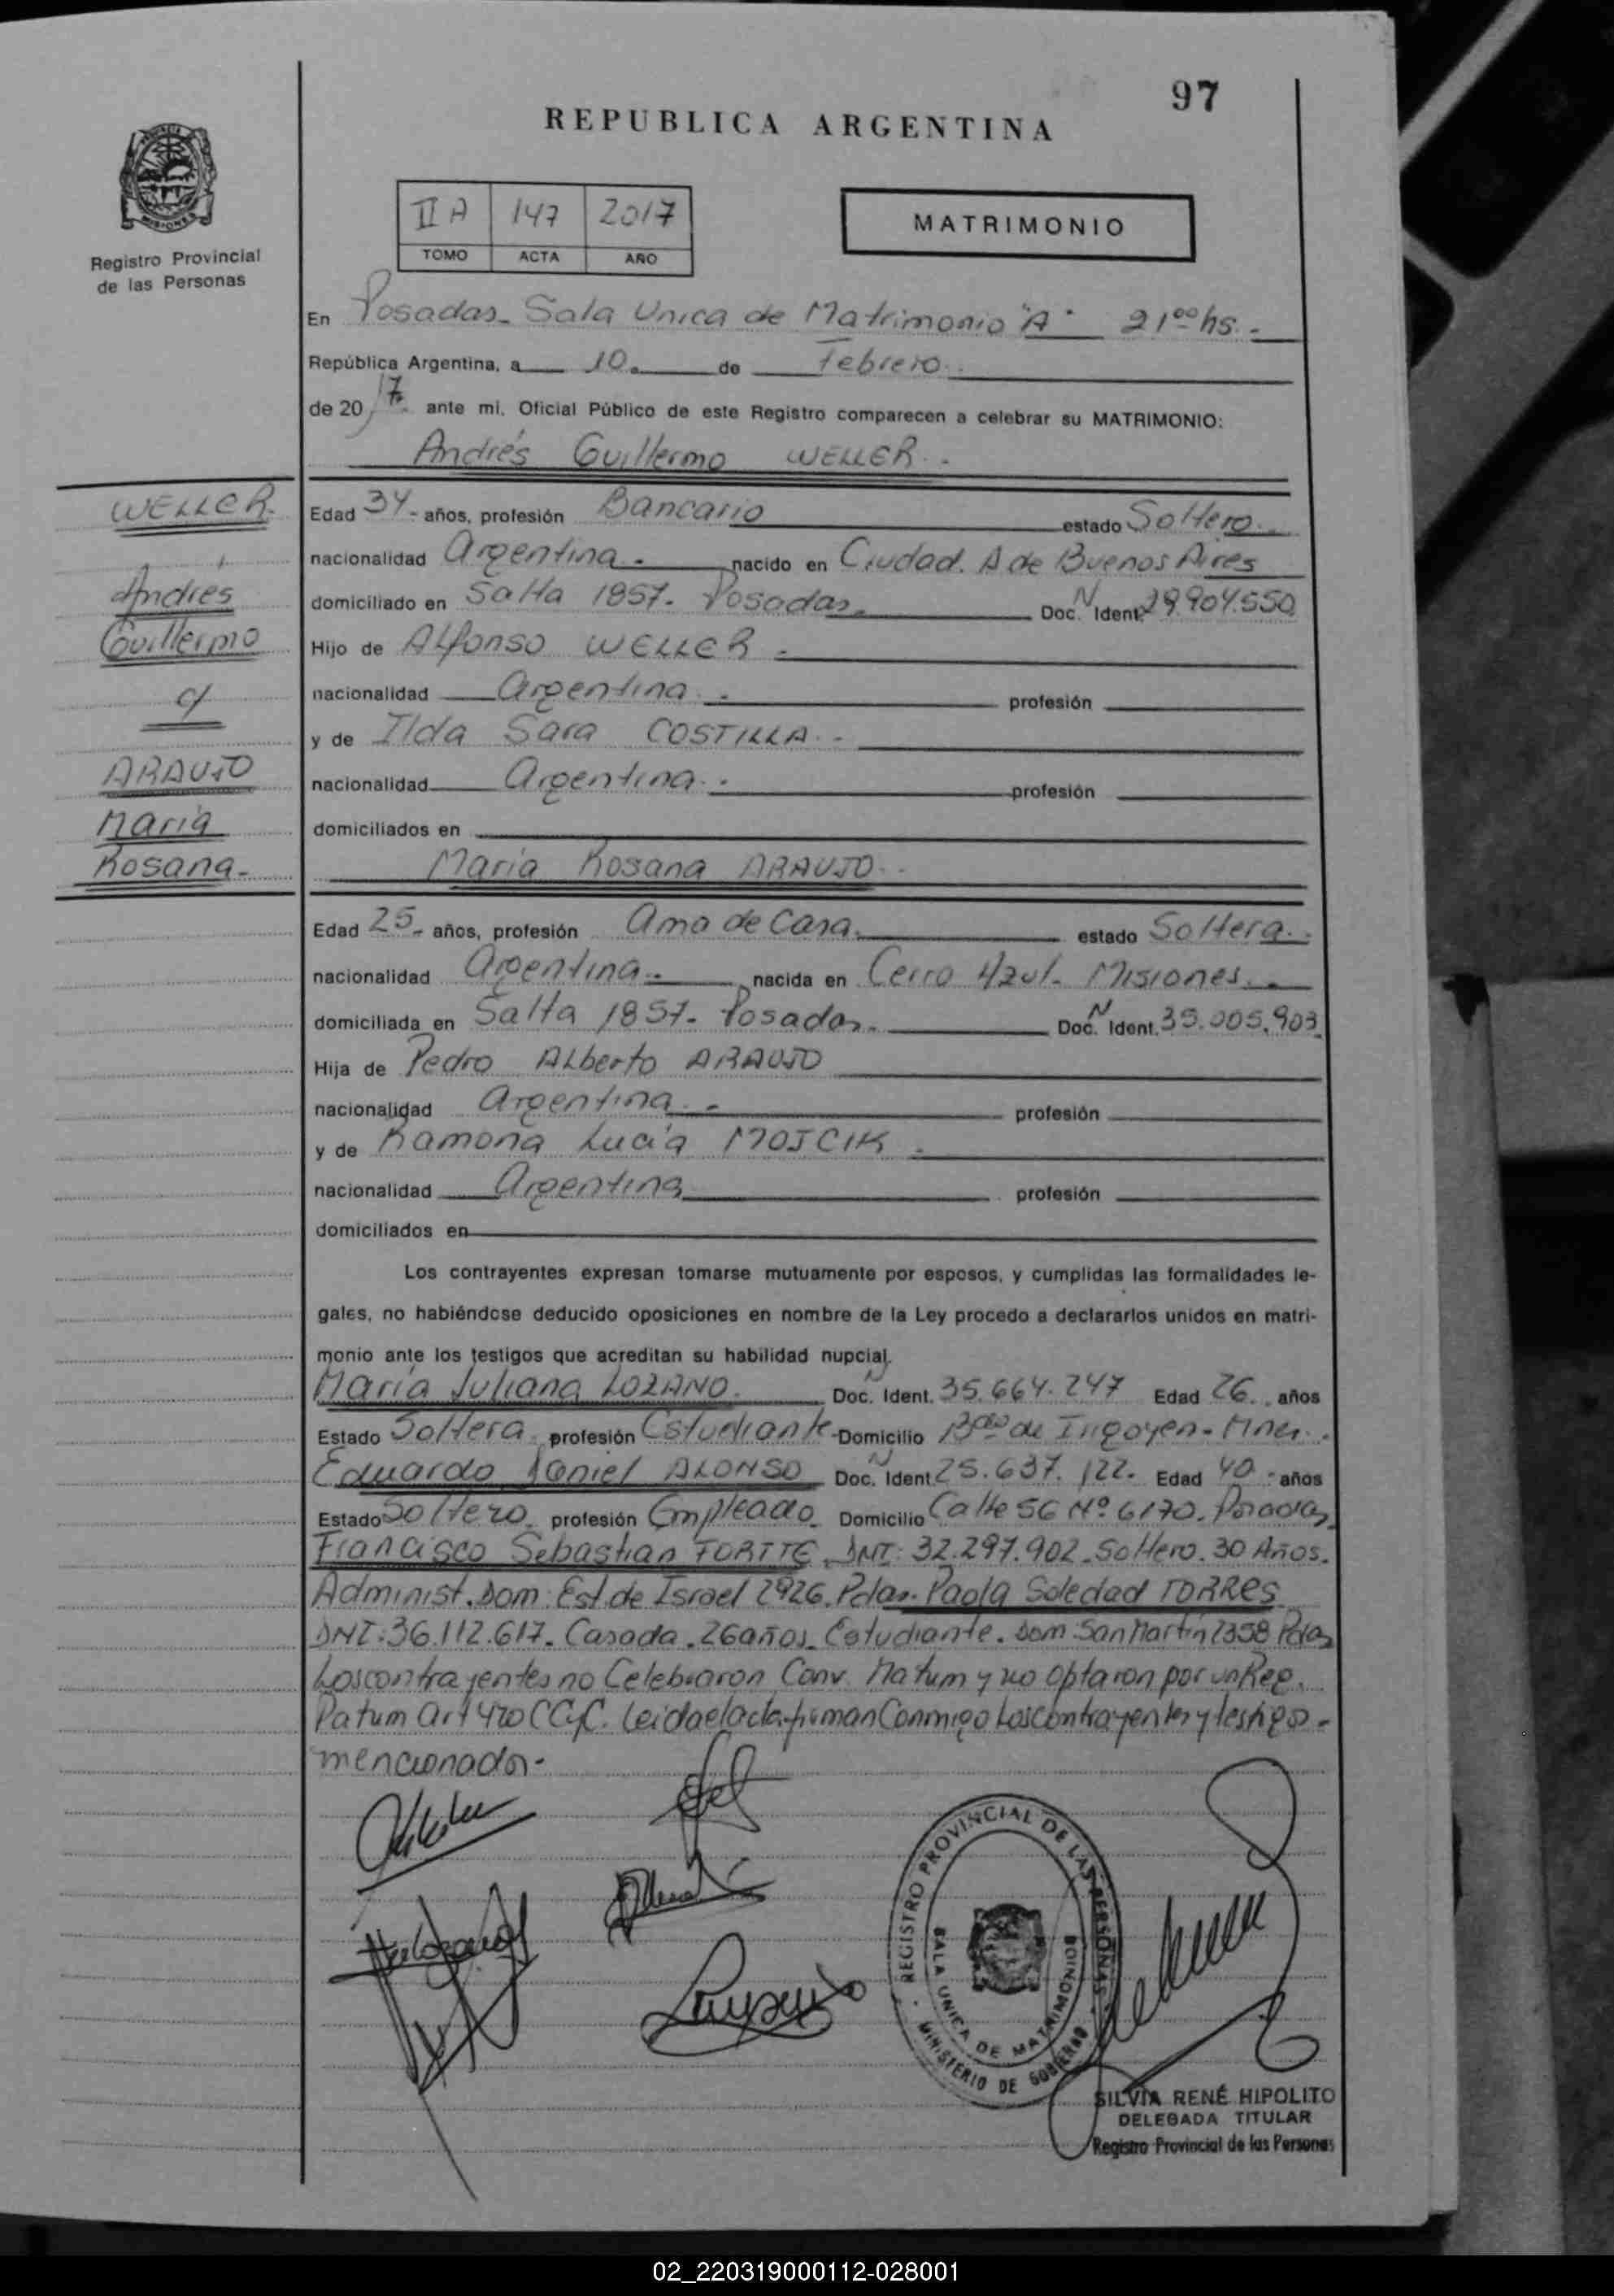 97
REPUBLICA ARGENTINA
MISIONES
Registro Provincial
de las Personas
II A 147 2017
TOMO ACTA AÑO
MATRIMONIO
En Posadas - Sala Unica de Matrimonio "A" 21⁰⁰ hs. -
República Argentina, a 10. de Febrero.
de 20 17 ante mi, Oficial Público de este Registro comparecen a celebrar su MATRIMONIO:
Andrés Guillermo WELLER. -
WELLER.
Andres
Guillermo
c/
ARAUJO
Maria
Rosana.-
Edad 34.- años, profesión Bancario estado Soltero.
nacionalidad Argentina. nacido en Ciudad. A de Buenos Aires
domiciliado en Salta 1857. Posadas. Doc. N Ident. 29.904.550
Hijo de Alfonso WELLER -
nacionalidad Argentina. - profesión
y de Ilda Sara COSTILLA. -
nacionalidad Argentina. - profesión
domiciliados en
Maria Rosana ARAUJO. -
Edad 25.- años, profesión Ama de Casa. estado Soltera.
nacionalidad Argentina.- nacida en Cerro Azul. Misiones.
domiciliada en Salta 1857. Posadas. Doc. N Ident. 35.005.903
Hija de Pedro Alberto ARAUJO
nacionalidad Argentina. - profesión
y de Ramona Lucia MOJCIK -
nacionalidad Argentina profesión
domiciliados en
Los contrayentes expresan tomarse mutuamente por esposos, y cumplidas las formalidades le-
gales, no habiéndose deducido oposiciones en nombre de la Ley procedo a declararlos unidos en matri-
monio ante los testigos que acreditan su habilidad nupcial.
María Juliana LOZANO. Doc. N Ident. 35.664.247 Edad 26. años
Estado Soltera. profesión Estudiante - Domicilio Bdo de Irigoyen - Mnes.
Eduardo Daniel ALONSO Doc. N Ident. 25.637.122. Edad 40 - años
Estado Soltero. profesión Empleado. Domicilio Calle 56 Nº 6170. Posadas
Francisco Sebastian DNI: 32.297.902. Soltero. 30 Años.
Administ. Dom: Est. de Israel 2926. Pdas. Paola Soledad TORRES
DNI: 36.112.617. Casada. 26 años. Estudiante. Dom San Martin 2358 Pdas
Los contrayentes no Celebraron Conv. Matum y no optaron por un Reg.
Patum art 420 CCyC. Leida el acta firman Conmigo Los contrayentes y testigos -
mencionados -
REGISTRO PROVINCIAL DE LAS PERSONAS
SALA UNICA DE MATRIMONIOS
MINISTERIO DE GOBIERNO
SILVIA RENÉ HIPOLITO
DELEGADA TITULAR
Registro Provincial de las Personas
02_220319000112-028001